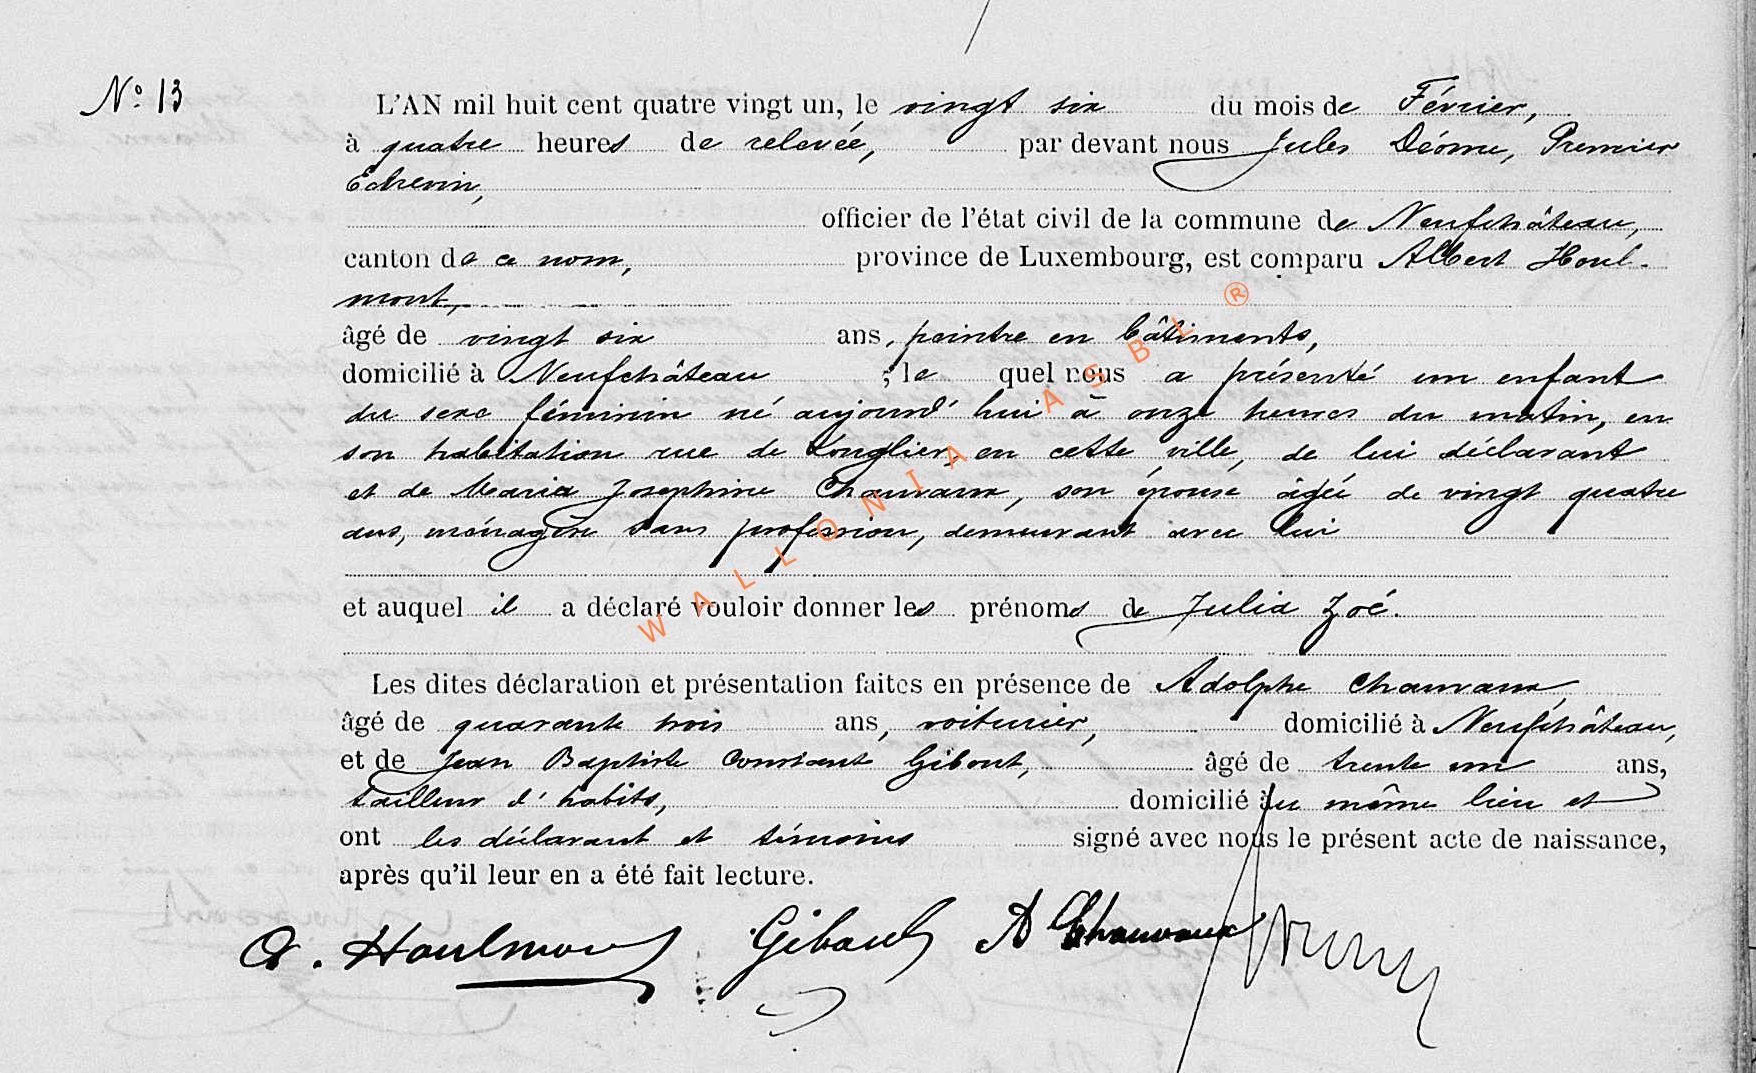 N° 13
L'AN mil huit cent quatre vingt un, le vingt six du mois de Février,
à quatre heures de relevée, par devant nous Jules Déome, Premier
Echevin,
officier de l'état civil de la commune de Neufchâteau,
canton de ce nom, province de Luxembourg, est comparu Albert Houl-
mont,
âgé de vingt six ans, peintre en bâtiments,
domicilié à Neufchâteau ; le quel nous a présenté un enfant
du sexe féminin né aujourd'hui à onze heures du matin, en
son habitation rue de Longlier, en cette ville, de lui déclarant
et de Maria Josephine Chauvaux, son épouse âgée de vingt quatre
ans, ménagère sans profession, demeurant avec lui
et auquel il a déclaré vouloir donner les prénoms de Julia Zoé.
Les dites déclaration et présentation faites en présence de Adolphe Chauvaux,
âgé de quarante trois ans, voiturier, domicilié à Neufchâteau,
et de Jean Baptiste Constant Gibout, âgé de trente un ans,
tailleur d'habits, domicilié au même lieu et
ont les déclarant et témoins signé avec nous le présent acte de naissance,
après qu'il leur en a été fait lecture.
A. Houlmont Gibout A Chauvaux
WALLONIA ASBL ®